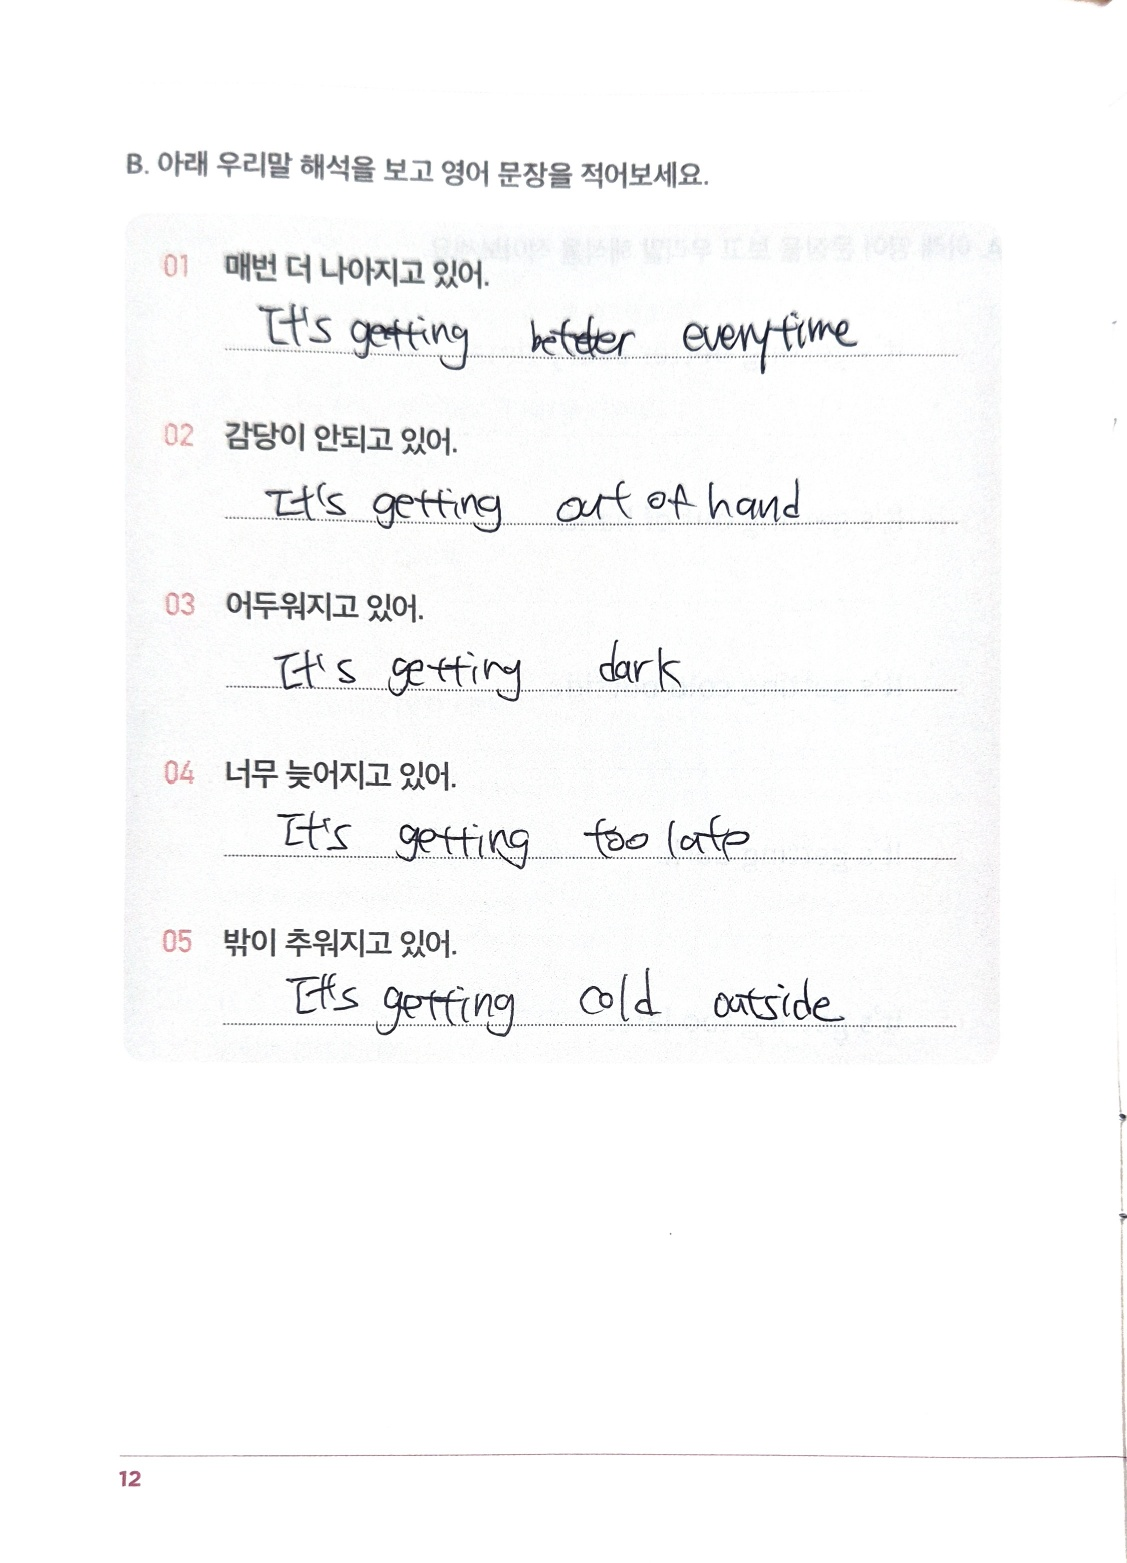 B. 아래 우리말 해석을 보고 영어 문장을 적어보세요.
01 매번 더 나아지고 있어.
It's getting better everytime
02 감당이 안되고 있어.
It's getting out of hand
03 어두워지고 있어.
It's getting dark
04 너무 늦어지고 있어.
It's getting too late
05 밖이 추워지고 있어.
It's getting cold outside
12